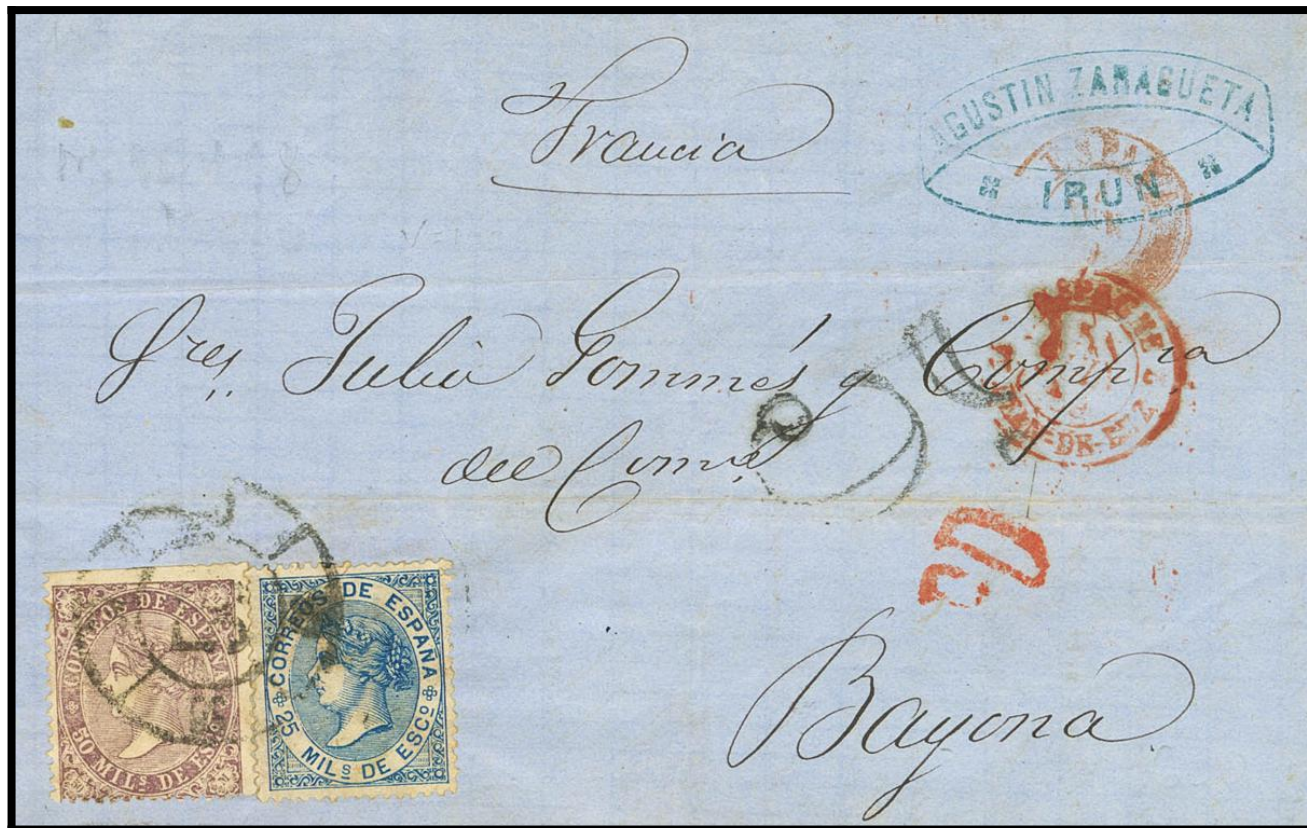 Francia
AGUSTIN ZARAGUETA
IRUN
Sres. Julio Gommés y Compia
del Como
ESPAGNE
P.D.
Bayona
CORREOS DE ESPAÑA
50 MILs DE ESCo
CORREOS DE ESPAÑA
25 MILs DE ESCo